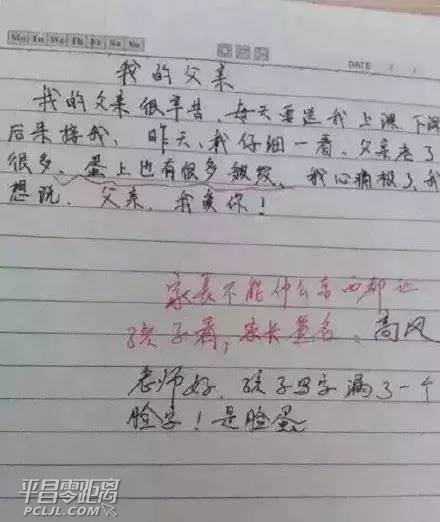 Mo Tu We Th Fr Sa Su
DATE / /
我的父亲
我的父亲很辛苦、每天要送我上课、下课
后来接我、昨天、我仔细一看、父亲老了
很多、蛋上也有很多皱纹、我心痛极了、我
想说、父亲、我爱你!
家长不能什么东西都让
孩子看,家长签名、高风
老师好、孩子写字漏了一个
脸字!是脸蛋
平昌零距离
PCLJL.COM